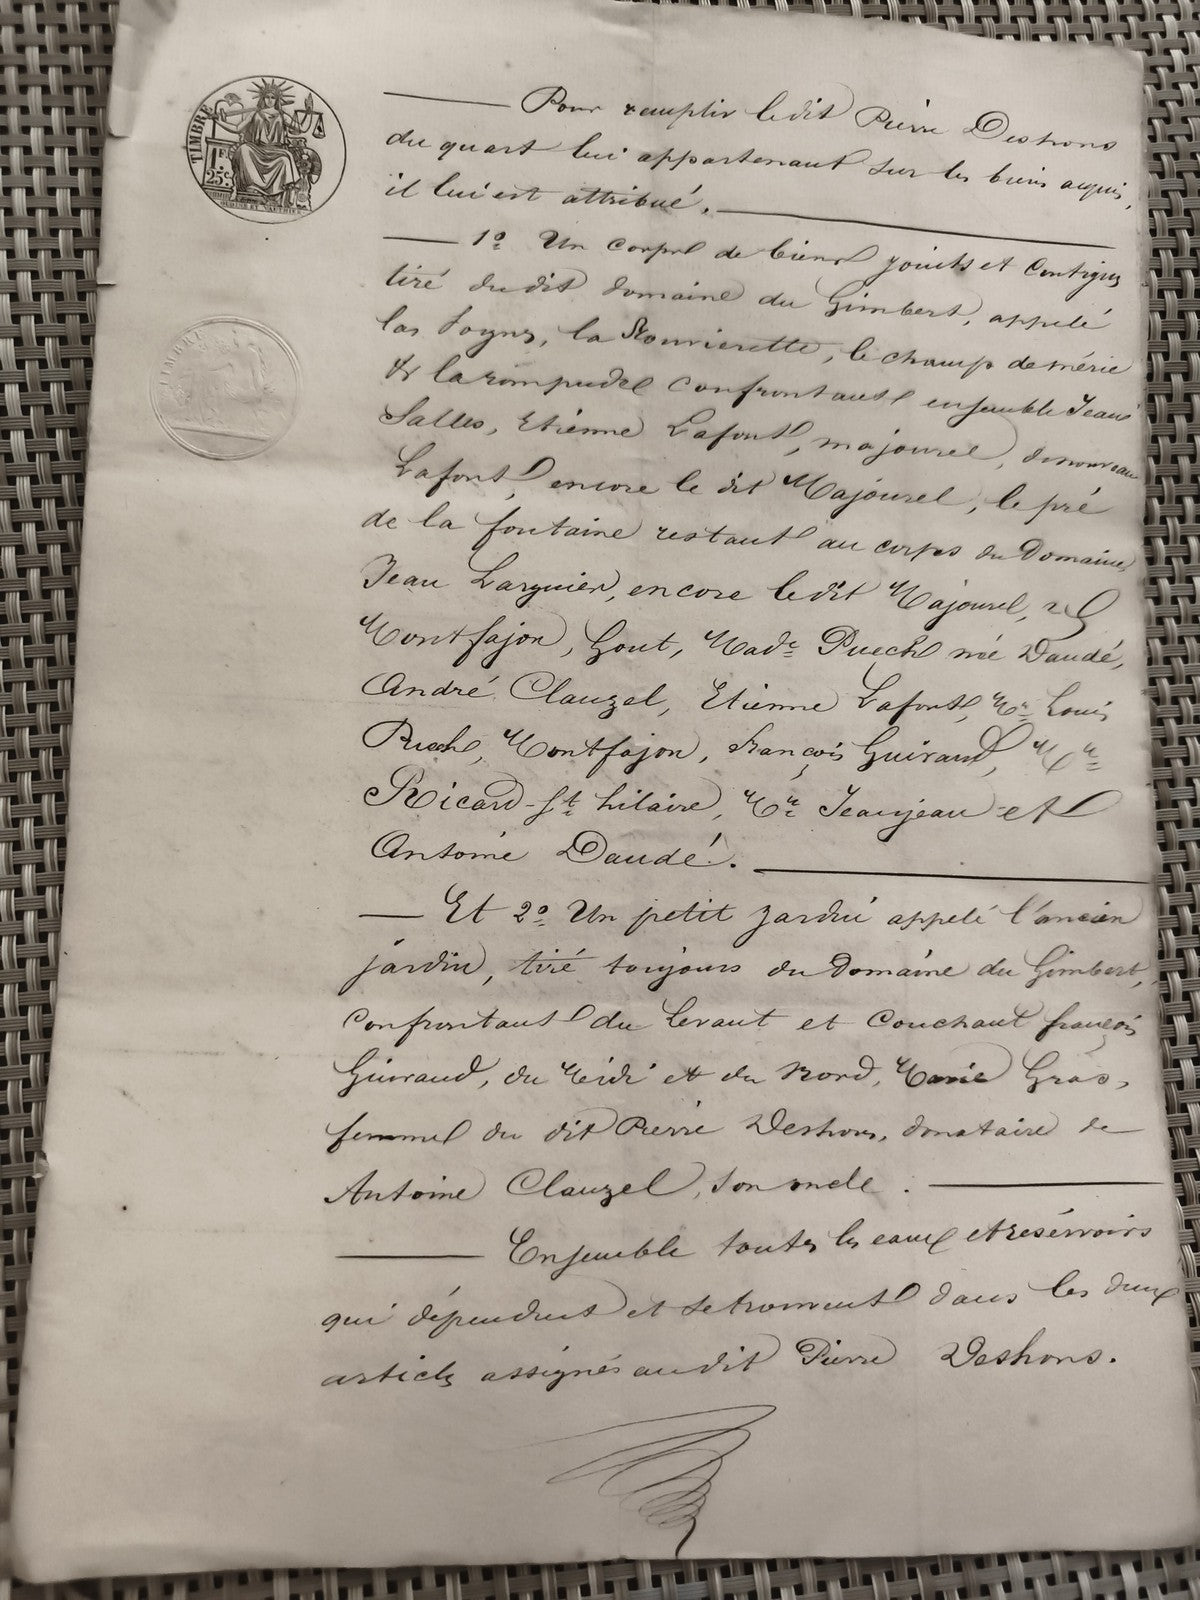 TIMBRE
1F
25c
TIMBRE
Pour remplir ledit Pierre Deshons
du quart lui appartenant sur les biens acquis,
il lui est attribué.
1º Un corps de biens joints et contigus
tiré du dit domaine du Gimbert, appelé
las la Rouvierette, le champ de mérie
& la rompude confrontant ensemble Jean
Salles, Etienne Lafont, majourel, de nouveau
Lafont, encore le dit Majourel, le pré
de la fontaine restant au corps du Domaine,
Jean Larguier, encore ledit Majourel,
Montfajon, Gout, Made Puech née Daudé,
André Clauzel, Etienne Lafont, Mr Louis
Puech, Montfajon, François Guiraud, Mr
Ricard-St hilaire, Mr Jeanjean et
Antoine Daudé.
Et 2º Un petit jardin appelé l'ancien
jardin, tiré toujours du Domaine du Gimbert,
confrontant du levant et Couchant françois
Guiraud, du Midi et du Nord, Marie Gras,
femme du dit Pierre Deshons, donataire de
Antoine Clauzel, son oncle.
Ensemble toutes les eaux et réservoirs
qui dépendent et se trouvent dans les deux
articles assignés audit Pierre Deshons.